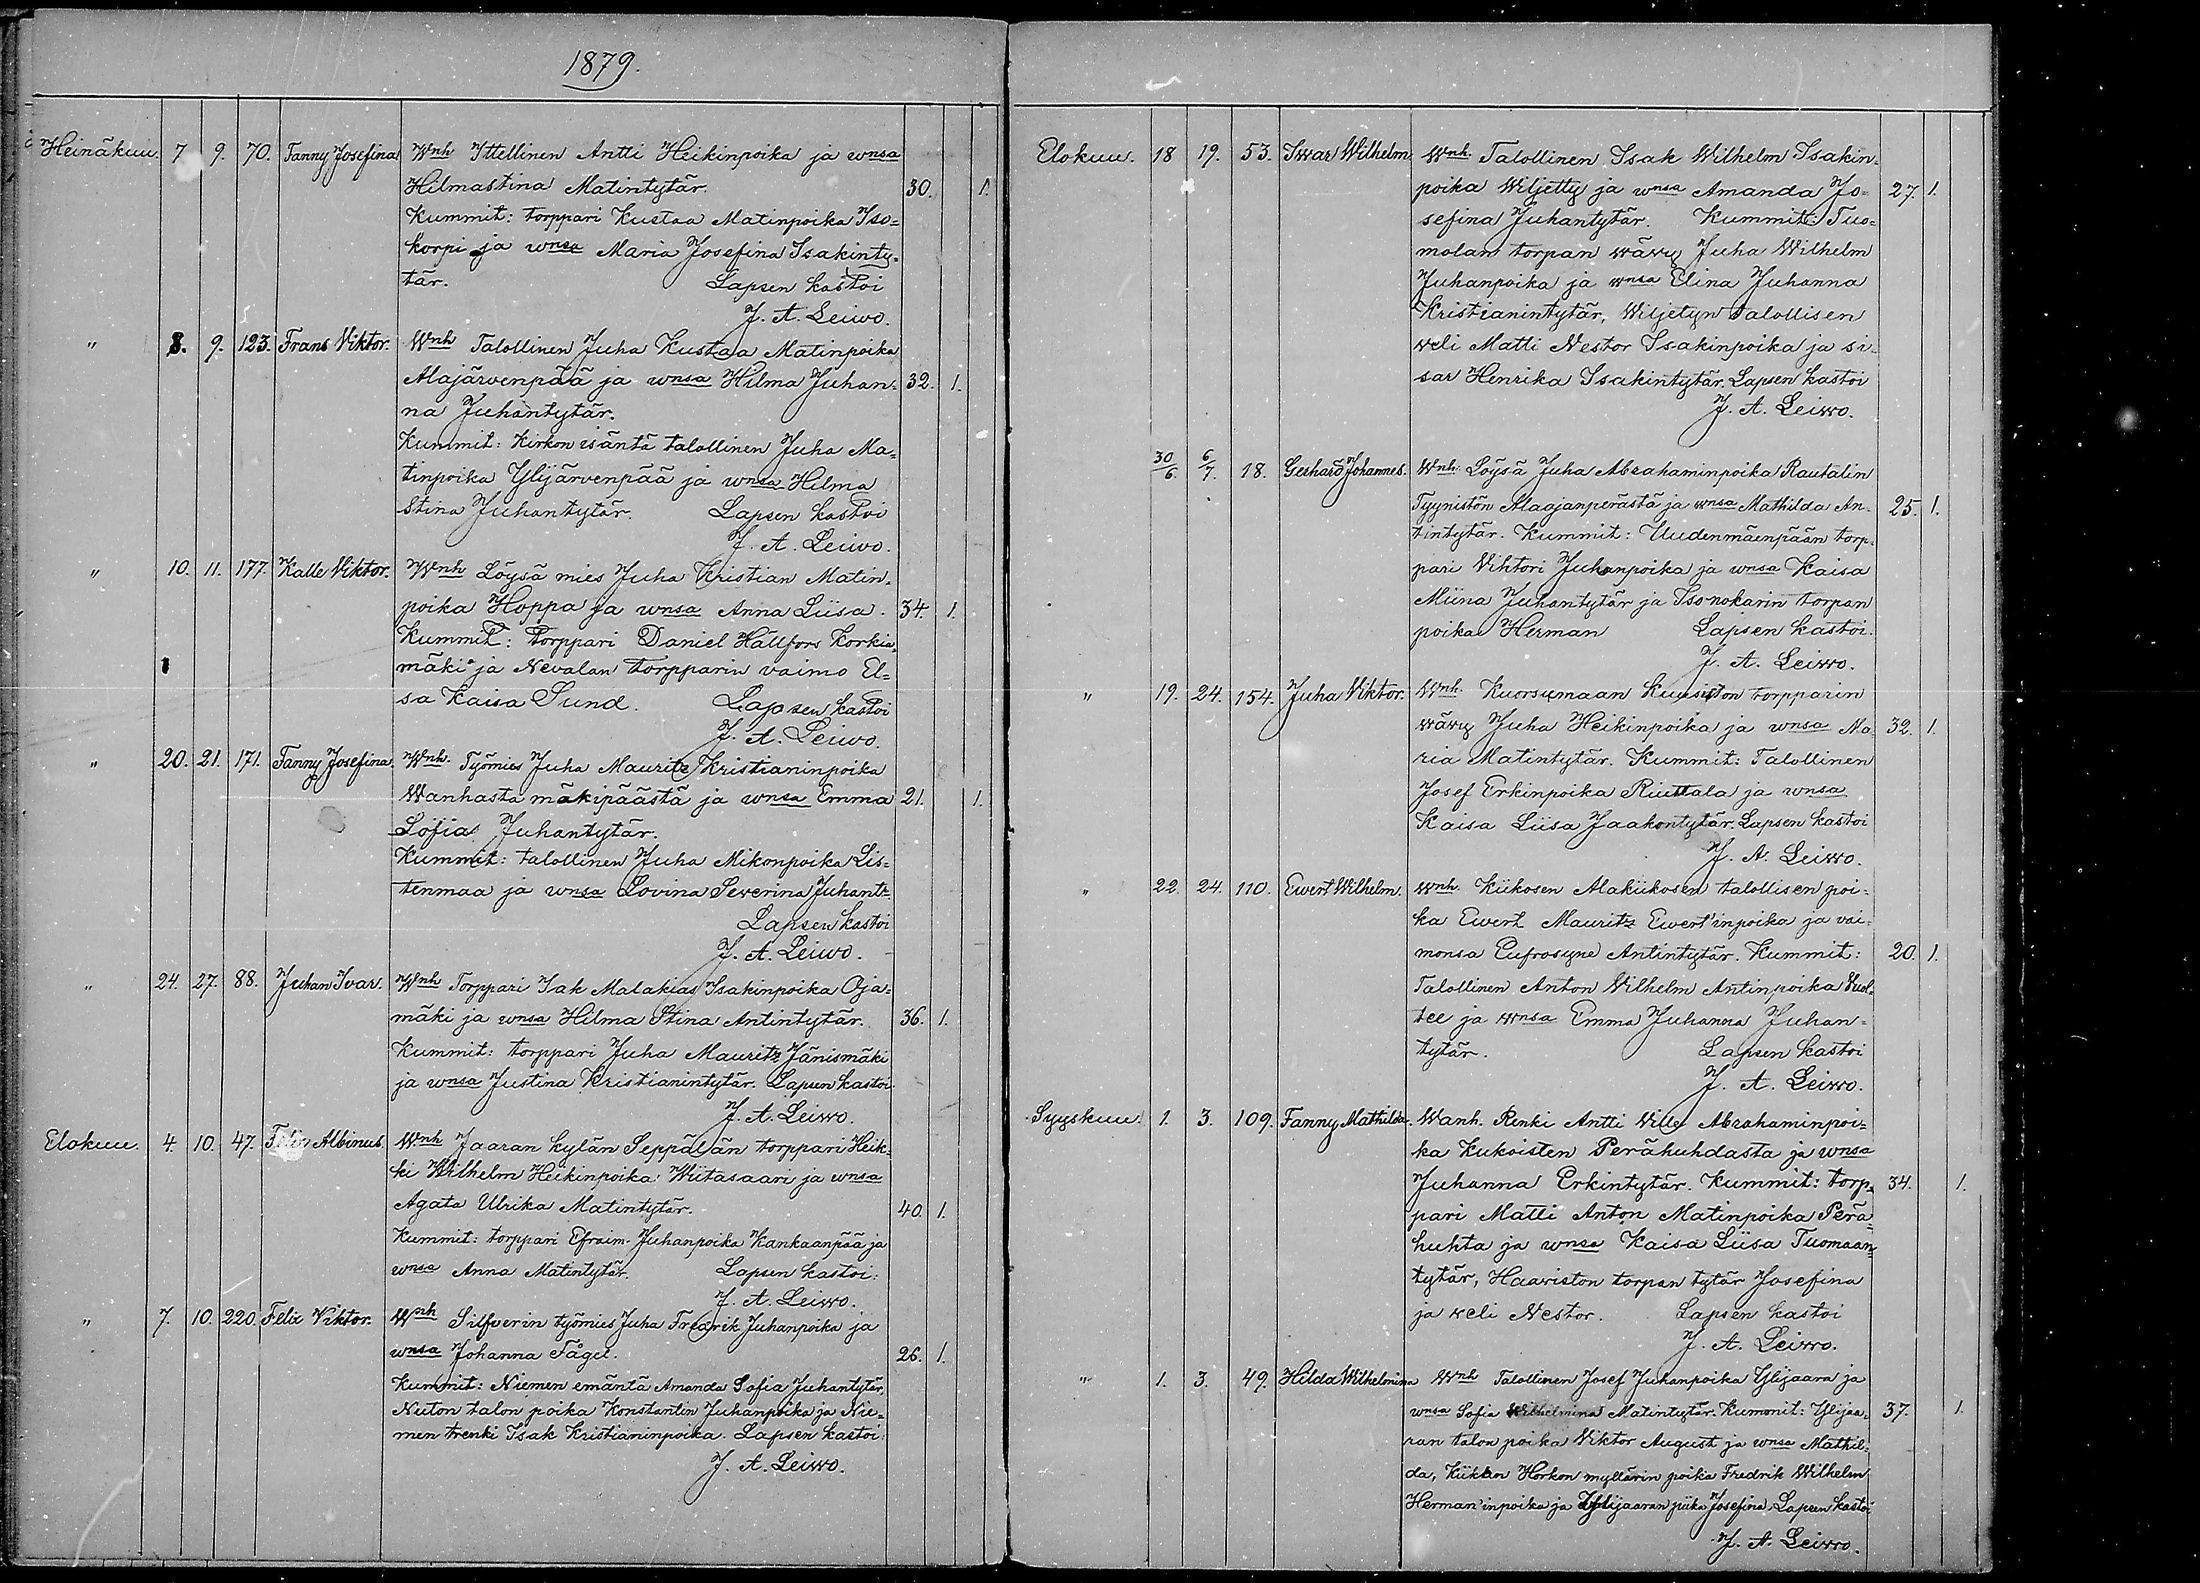 1879.
Heinäkuu. 7 9. 70. Fanny Josefina Wnh Yttellinen Antti Heikinpoika ja wnsa
Hilmastina Matintytär. 30. 1.
Kummit: torppari Kustaa Matinpoika Iso=
korpi ja wnsa Maria Josefina Isakinty=
tär. Lapsen kastoi
J. A. Leiwo.
" 8. 9. 123. Frans Viktor. Wnh Talollinen Juha Kustaa Matinpoika
Alajärvenpää ja wnsa Hilma Juhan= 32. 1.
na Juhantytär.
Kummit: Kirkon isäntä talollinen Juha Ma=
tinpoika Ylijärvenpää ja wnsa Hilma
Stina Juhantytär. Lapsen kastoi
J. A. Leiwo.
" 10. 11. 177. Kalle Viktor. Wnh Löysä mies Juha Kristian Matin=
poika Hoppa ja wnsa Anna Liisa. 34. 1.
Kummit: Torppari Daniel Hallfors Korkia=
mäki ja Nevalan torpparin vaimo El=
sa Kaisa Sund. Lapsen kastoi
J. A. Leiwo.
" 20. 21. 171. Fanny Josefina. Wnh. Työmies Juha Mauritz Kristianinpoika
Wanhasta mäkipäästä ja wnsa Emma 21. 1.
Sofia Juhantytär.
Kummit: talollinen Juha Mikonpoika Lis=
tenmaa ja wnsa Lovina Severina Juhantr
Lapsen kastoi
J. A. Leiwo.
" 24. 27. 88. Juhan Ivar. Wnh Torppari Isak Malakias Isakinpoika Oja=
mäki ja wnsa Hilma Stina Antintytär. 36. 1.
Kummit: torppari Juha Mauritz Jänismäki
ja wnsa Justina Kristianintytär. Lapsen kastoi
J. A. Leiwo.
Elokuu. 4. 10. 47. Felix Albinus. Wnh Jaaran kylän Seppälän torppari Heik=
ki Wilhelm Heikinpoika Wiitasaari ja wnsa
Agata Ulrika Matintytär. 40. 1.
Kummit: torppari Efraim Juhanpoika Kankaanpää ja
wnsa Anna Matintytär. Lapsen kastoi:
J. A. Leiwo.
" 7. 10. 220. Felix Viktor. Wnh Silfverin työmies Juha Fredrik Juhanpoika ja
wnsa Johanna Fågel. 26. 1.
Kummit: Niemen emäntä Amanda Sofia Juhantytär,
Nuton talon poika Konstantin Juhanpoika ja Nie=
men trenki Isak Kristianinpoika. Lapsen kastoi:
J. A. Leiwo.
Elokuu. 18 19. 53. Iwar Wilhelm. Wnh. Talollinen Isak Wilhelm Isakin=
poika Wiljetty ja wnsa Amanda Jo= 27. 1.
sefina Juhantytär. Kummit: Tuo=
molan torpan wäwy Juha Wilhelm
Juhanpoika ja wnsa Elina Juhanna
Kristianintytär, Wiljetyn talollisen
weli Matti Nestor Isakinpoika ja si=
sar Henrika Isakintytär. Lapsen kastoi
J. A. Leiwo.
30/6. 6/7. 18. Gerhard Johannes. Wnh. Löysä Juha Abrahaminpoika Rautalin
Tyynistön Alaajanperästä ja wnsa Mathilda An= 25. 1.
tintytär. Kummit: Uudenmäenpään torp=
pari Vihtori Juhanpoika ja wnsa Kaisa
Miina Juhantytär ja Isonokarin torpan
poika Herman Lapsen kastoi.
J. A. Leiwo.
" 19. 24. 154. Juha Viktor. Wnh. Kuorsumaan Kuusiston torpparin
wäwy Juha Heikinpoika ja wnsa Ma= 32. 1.
ria Matintytär. Kummit: Talollinen
Josef Erkinpoika Riuttala ja wnsa
Kaisa Liisa Jaakontytär. Lapsen kastoi
J. A. Leiwo.
" 22. 24. 110. Ewert Wilhelm. Wnh. Kiikosen Alakiikosen talollisen poi=
ka Ewert Mauritz Ewert'inpoika ja vai=
monsa Eufrosyne Antintytär. Kummit: 20. 1.
Talollinen Anton Wilhelm Antinpoika
tee ja wnsa Emma Juhanna Juhan=
tytär. Lapsen kastoi
J. A. Leiwo.
Syyskuu. 1. 3. 109. Fanny Mathilda. Wanh. Renki Antti Wille Abrahaminpoi=
ka Kukoisten Perähuhdasta ja wnsa
Juhanna Erkintytär. Kummit: torp= 34. 1.
pari Matti Anton Matinpoika Perä=
huhta ja wnsa Kaisa Liisa Tuomaan=
tytär, Haaviston torpan tytär Josefina
ja weli Nestor. Lapsen kastoi
J. A. Leiwo.
" 1. 3. 49. Hilda Wilhelmina Wnh Talollinen Josef Juhanpoika Ylijaara ja
wnsa Sofia Wilhelmina Matintytär. Kummit: Ylijaa= 37. 1.
ran talon poika Viktor August ja wnsa Mathil=
da, Kiikan Horkon myllärin poika Fredrik Wilhelm
Herman'inpoika ja Ylijaaran piika Josefina. Lapsen kastoi
J. A. Leiwo.